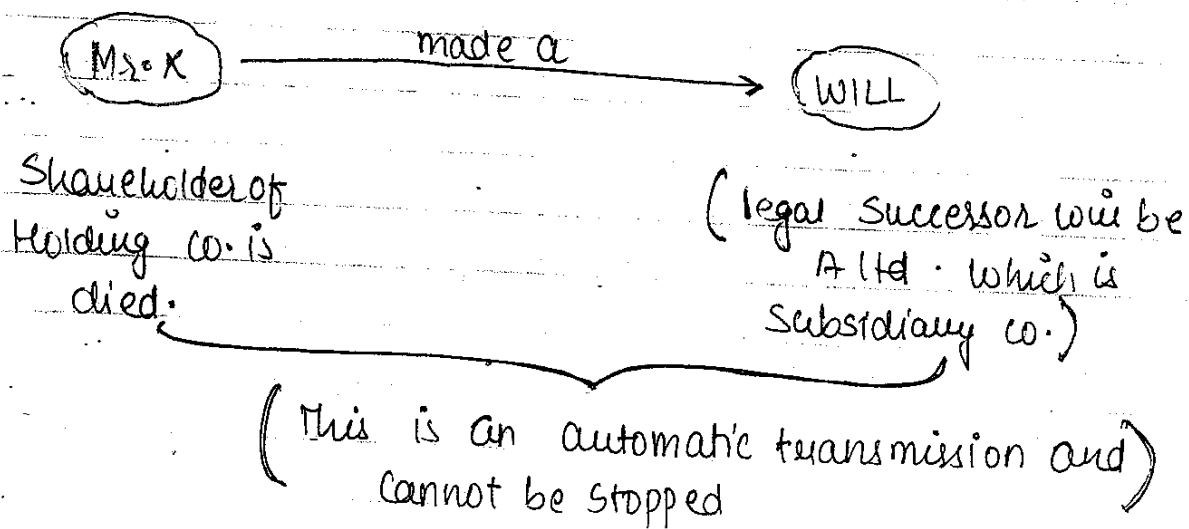 Mr. X
made a
WILL
Shareholder of
Holding co. is
died.
(legal successor will be
A ltd. which is
Subsidiary co.)
(This is an automatic transmission and)
cannot be stopped